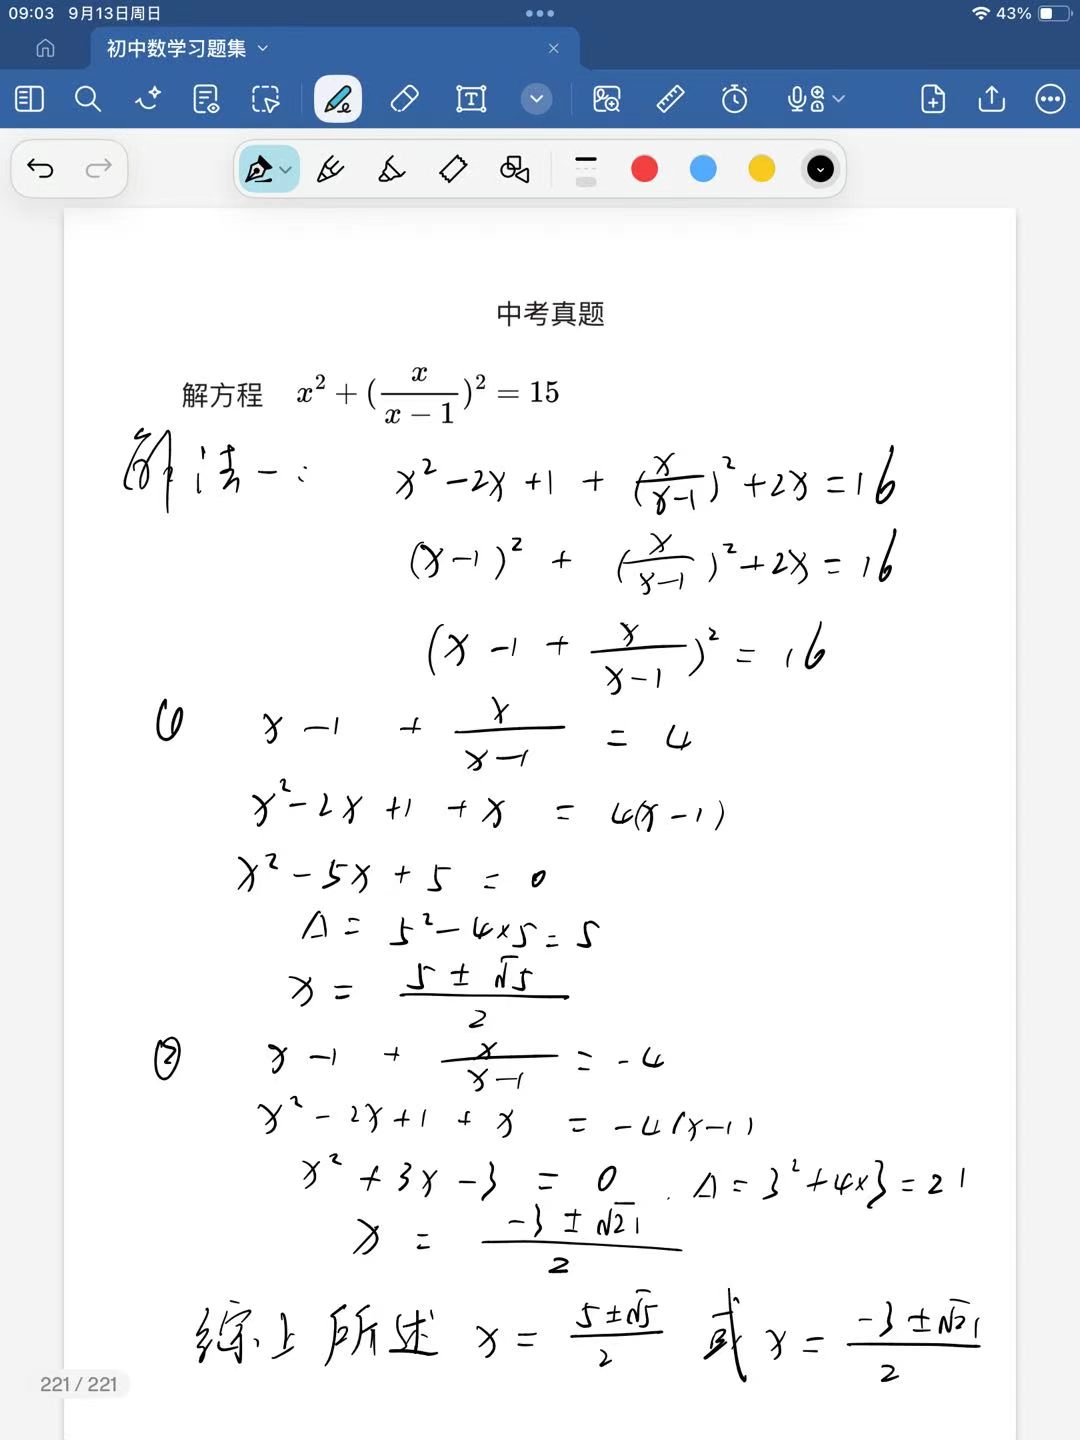 09:03 9月13日周日 43%
初中数学习题集
中考真题
解方程 x² + (x/(x − 1))² = 15
解法一: x² - 2x + 1 + (x/(x-1))² + 2x = 16
(x-1)² + (x/(x-1))² + 2x = 16
(x - 1 + x/(x-1))² = 16
① x - 1 + x/(x-1) = 4
x² - 2x + 1 + x = 4(x-1)
x² - 5x + 5 = 0
Δ = 5² - 4×5 = 5
x = (5 ± √5)/2
② x - 1 + x/(x-1) = -4
x² - 2x + 1 + x = -4(x-1)
x² + 3x - 3 = 0 . Δ = 3² + 4×3 = 21
x = (-3 ± √21)/2
综上所述 x = (5 ± √5)/2 或 x = (-3 ± √21)/2
221 / 221